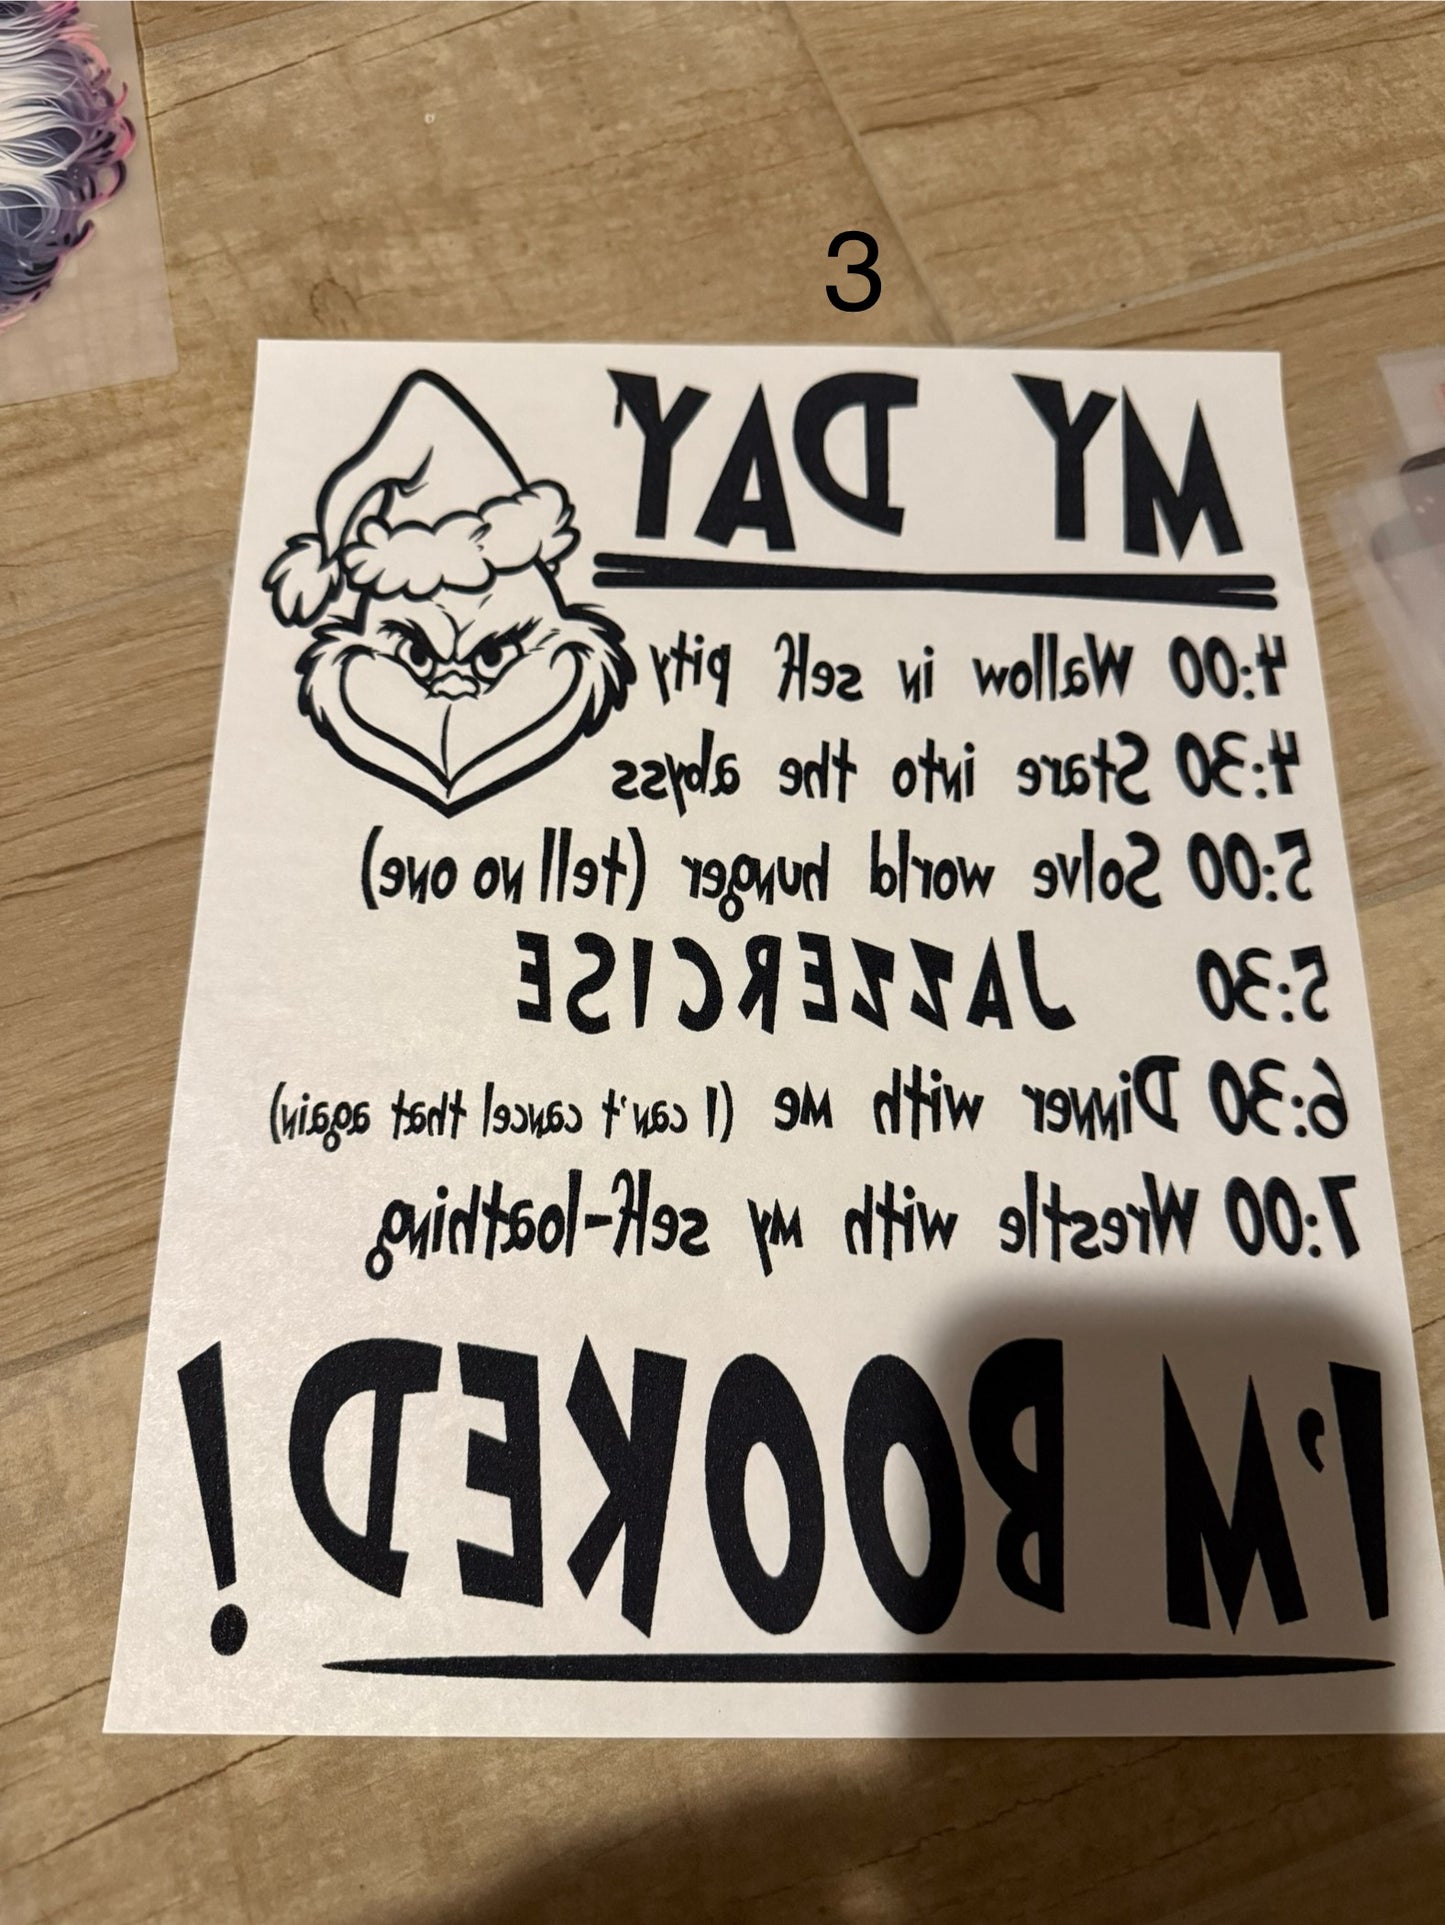 3
MY DAY
4:00 Wallow in self pity
4:30 Stare into the abyss
5:00 Solve world hunger (tell no one)
5:30 JAZZERCISE
6:30 Dinner with me (I can't cancel that again)
7:00 Wrestle with my self-loathing
I'M BOOKED!